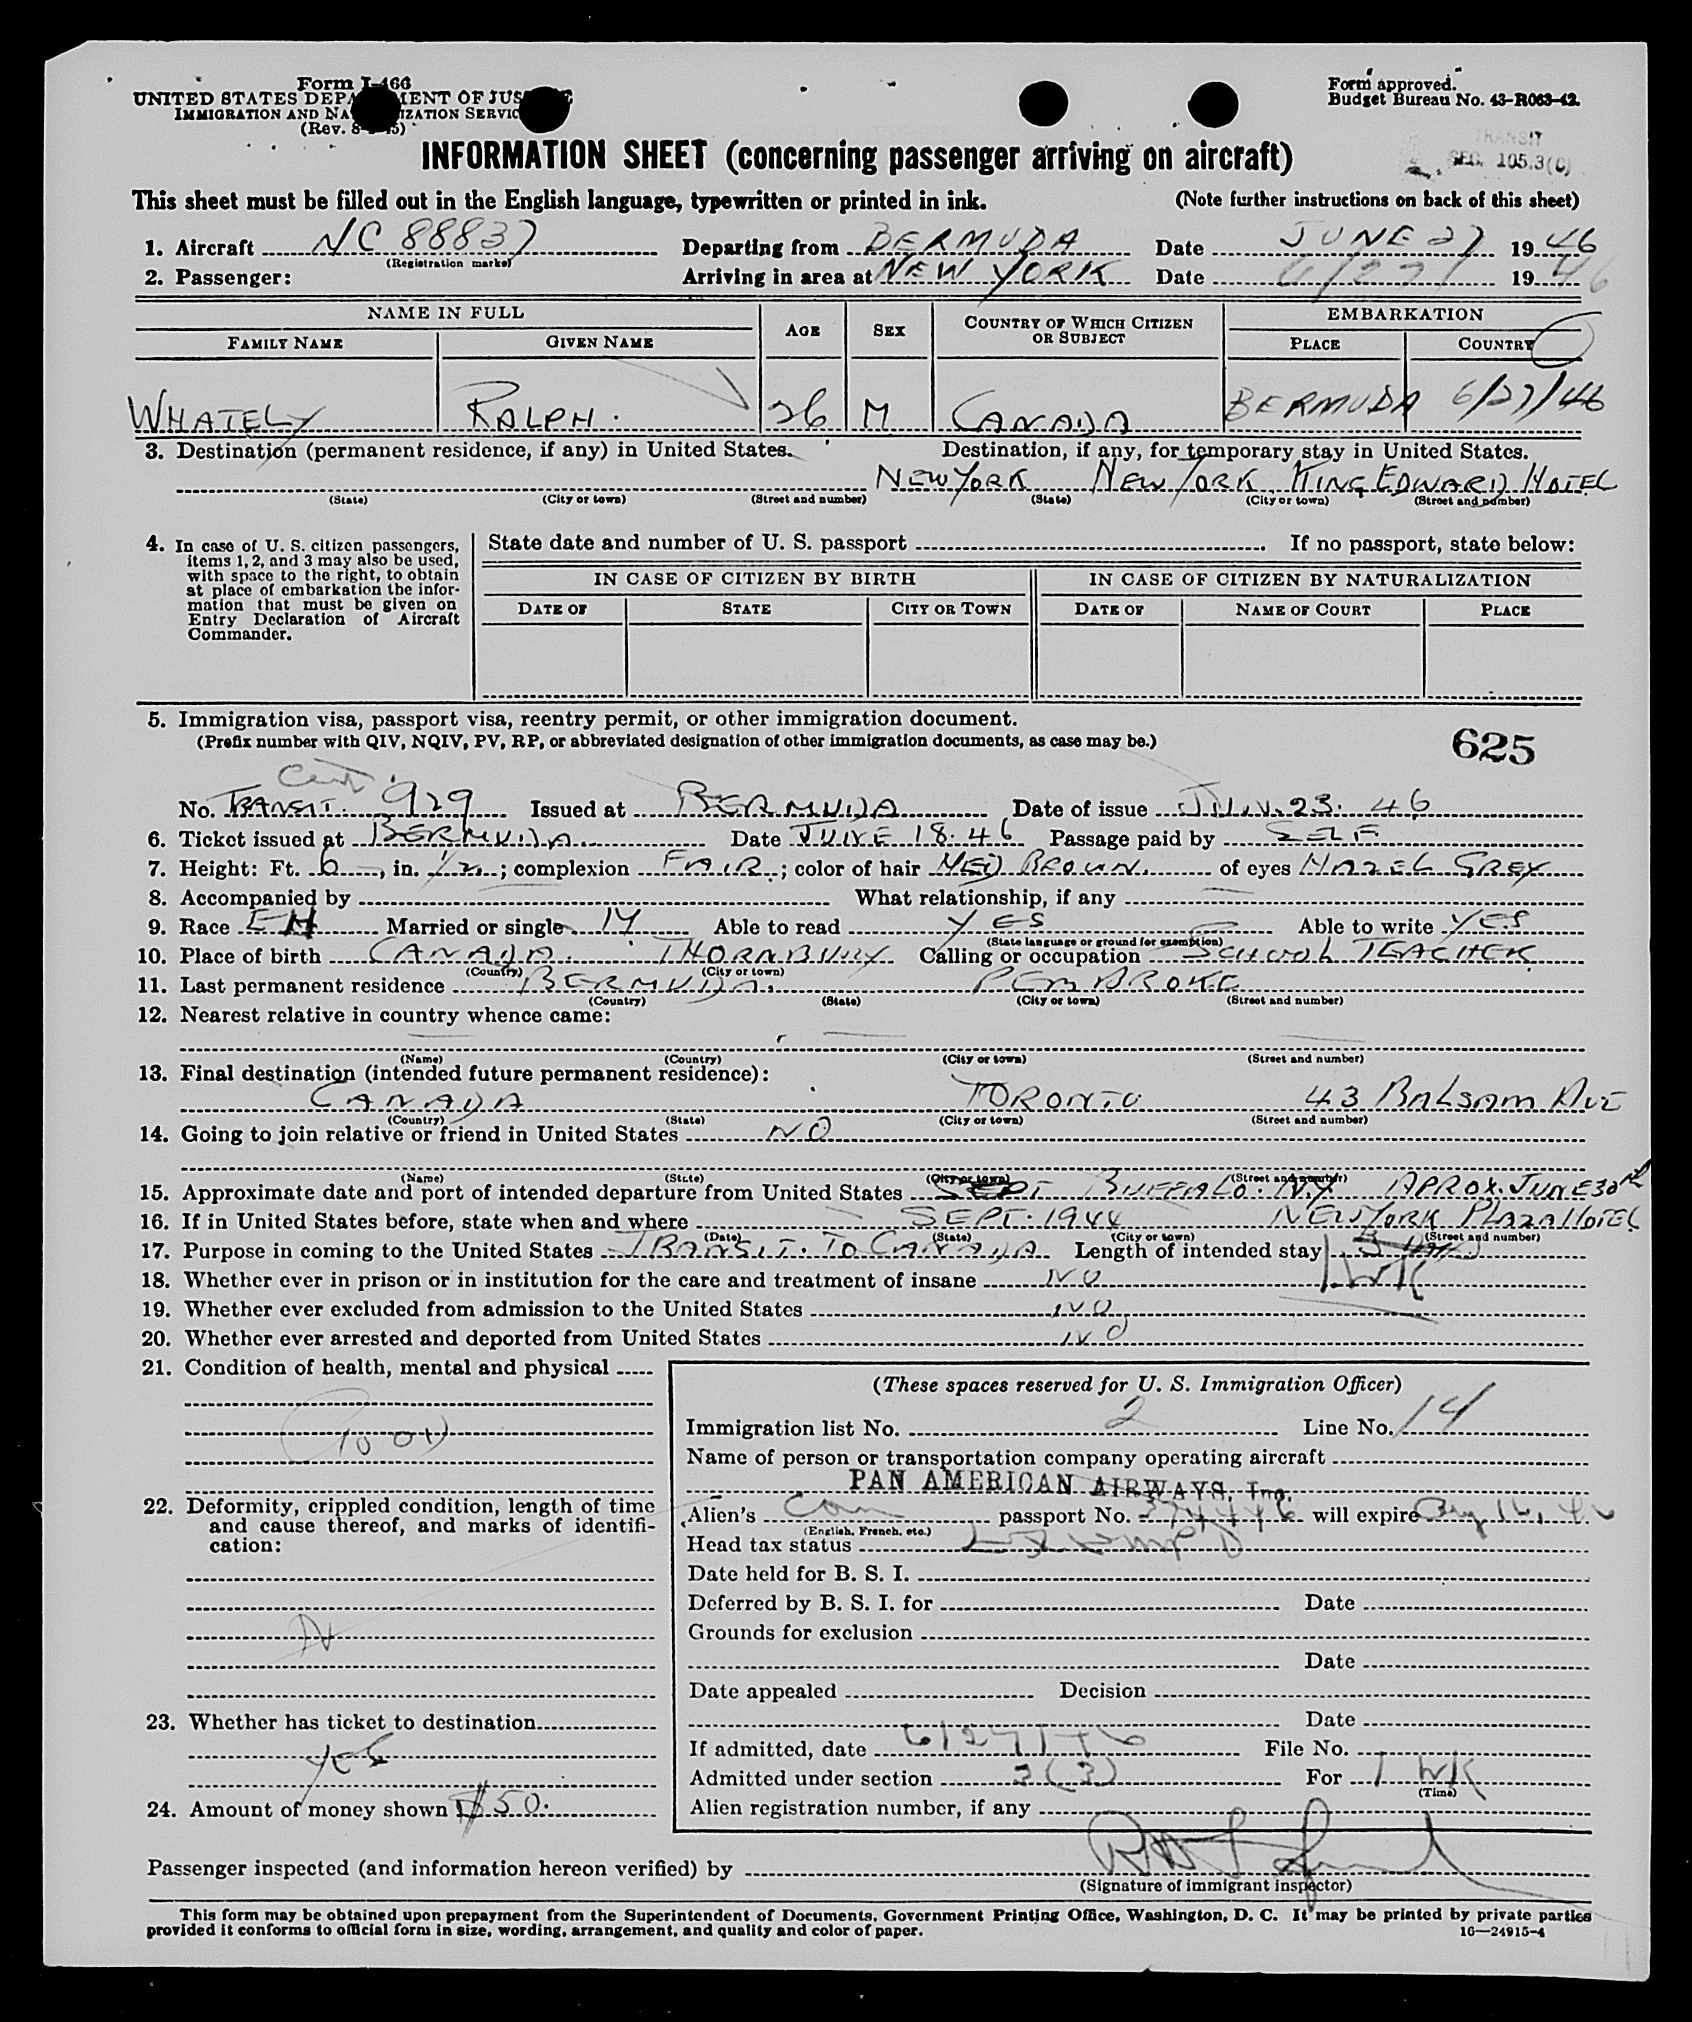 Form I-466
UNITED STATES DEPARTMENT OF JUSTICE
IMMIGRATION AND NATURALIZATION SERVICE
(Rev.
Form approved.
Budget Bureau No. 43-R063-42.
TRANSIT
SEC. 105.3(C)
INFORMATION SHEET (concerning passenger arriving on aircraft)
This sheet must be filled out in the English language, typewritten or printed in ink. (Note further instructions on back of this sheet)
1. Aircraft NC 88837 Departing from BERMUDA Date JUNE 27 1946
(Registration marks)
2. Passenger: Arriving in area at NEW YORK Date 6/27/ 1946
NAME IN FULL AGE SEX COUNTRY OF WHICH CITIZEN OR SUBJECT EMBARKATION
FAMILY NAME GIVEN NAME PLACE COUNTRY
WHATELY RALPH. 26 M CANADA BERMUDA 6/27/46
3. Destination (permanent residence, if any) in United States. Destination, if any, for temporary stay in United States.
NEW YORK NEW YORK KING EDWARD HOTEL
(State) (City or town) (Street and number) (State) (City or town) (Street and number)
4. In case of U. S. citizen passengers,
items 1, 2, and 3 may also be used,
with space to the right, to obtain
at place of embarkation the infor-
mation that must be given on
Entry Declaration of Aircraft
Commander.
State date and number of U. S. passport If no passport, state below:
IN CASE OF CITIZEN BY BIRTH IN CASE OF CITIZEN BY NATURALIZATION
DATE OF STATE CITY OR TOWN DATE OF NAME OF COURT PLACE
5. Immigration visa, passport visa, reentry permit, or other immigration document.
(Prefix number with QIV, NQIV, PV, RP, or abbreviated designation of other immigration documents, as case may be.)
625
No. TRANSIT. 929 Issued at BERMUDA Date of issue JUN. 23. 46
6. Ticket issued at BERMUDA. Date JUNE 18. 46 Passage paid by SELF
7. Height: Ft. 6, in. 1/2; complexion FAIR; color of hair MED BROWN. of eyes HAZEL GREY
8. Accompanied by What relationship, if any
9. Race EH Married or single M Able to read YES Able to write YES
(State language or ground for exemption)
10. Place of birth CANADA. THORNBURY Calling or occupation SCHOOL TEACHER
(Country) (City or town)
11. Last permanent residence BERMUDA. PEMBROKE
(Country) (State) (City or town) (Street and number)
12. Nearest relative in country whence came:
(Name) (Country) (City or town) (Street and number)
13. Final destination (intended future permanent residence):
CANADA TORONTO 43 BALSAM AVE
(Country) (State) (City or town) (Street and number)
14. Going to join relative or friend in United States NO
(Name) (State) (City or town) (Street and number)
15. Approximate date and port of intended departure from United States BUFFALO. N.Y. APROX. JUNE 30th
16. If in United States before, state when and where SEPT. 1944 NEW YORK PLAZA HOTEL
(Date) (State) (City or town) (Street and number)
17. Purpose in coming to the United States TRANSIT. TO CANADA Length of intended stay 1 WK
18. Whether ever in prison or in institution for the care and treatment of insane NO
19. Whether ever excluded from admission to the United States NO
20. Whether ever arrested and deported from United States NO
21. Condition of health, mental and physical
GOOD
22. Deformity, crippled condition, length of time
and cause thereof, and marks of identifi-
cation:
N
23. Whether has ticket to destination
YES
24. Amount of money shown $50.
(These spaces reserved for U. S. Immigration Officer)
Immigration list No. 2 Line No. 14
Name of person or transportation company operating aircraft
PAN AMERICAN AIRWAYS, Inc.
Alien's Can passport No. will expire
(English, French, etc.)
Head tax status
Date held for B. S. I.
Deferred by B. S. I. for Date
Grounds for exclusion
Date
Date appealed Decision
Date
If admitted, date 6/27/46 File No.
Admitted under section 3(3) For 1 WK
(Time)
Alien registration number, if any
Passenger inspected (and information hereon verified) by
(Signature of immigrant inspector)
This form may be obtained upon prepayment from the Superintendent of Documents, Government Printing Office, Washington, D. C. It may be printed by private parties
provided it conforms to official form in size, wording, arrangement, and quality and color of paper. 16—24915-4